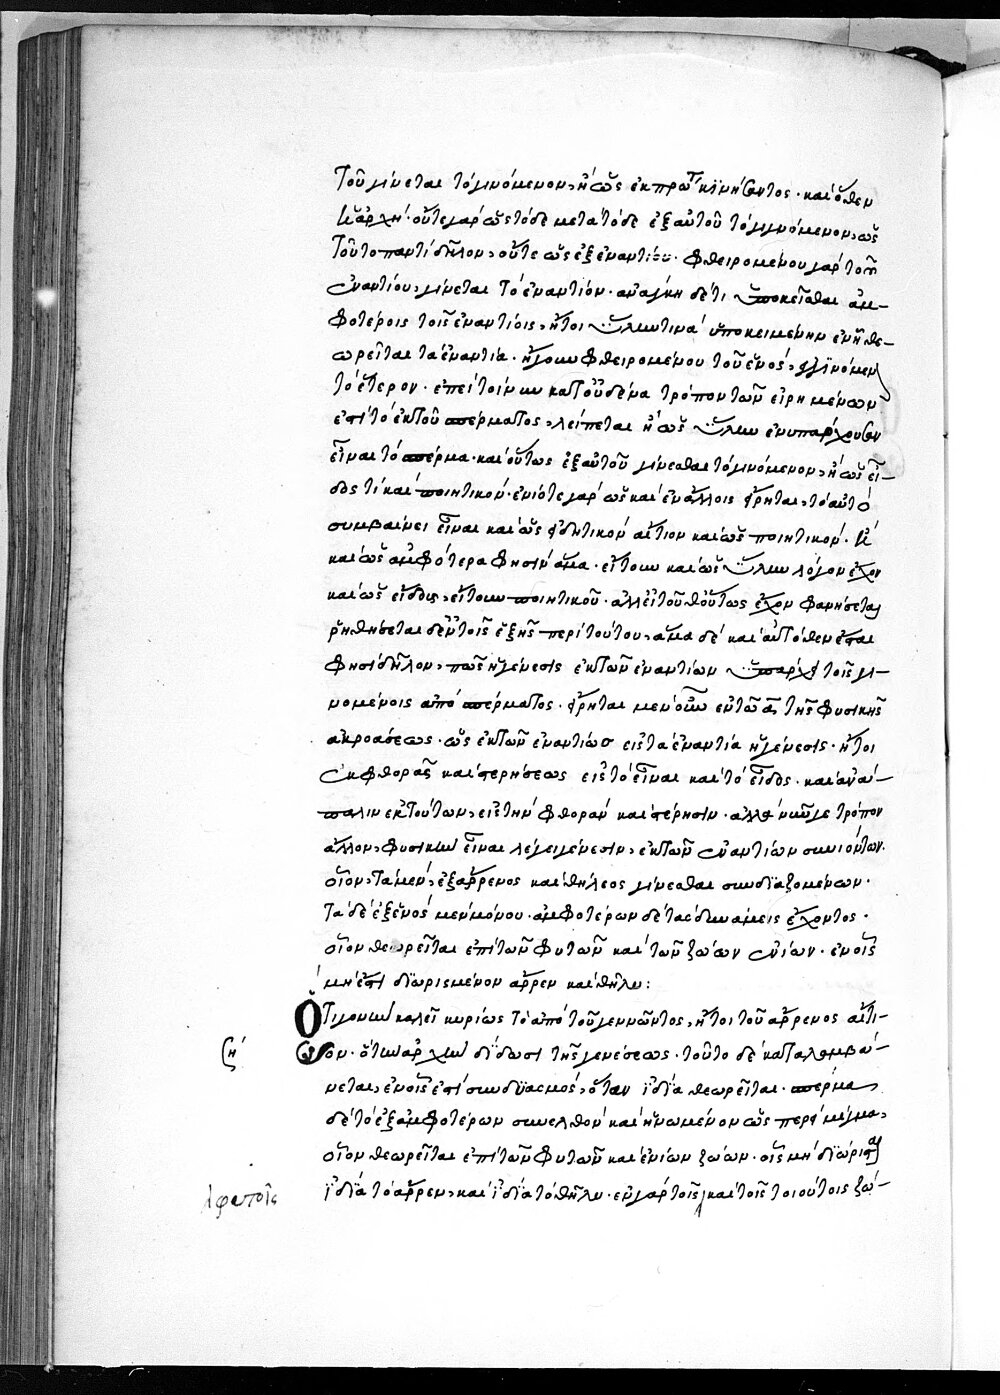 τοῦ γίνεται τὸ γινόμενον, ἢ ὡς ἐκ πρώτου κινήσαντος. καὶ ὅθεν
ἡ ἀρχή. οὔτε γὰρ ὡς τόδε μετὰ τόδε ἐξ αὐτοῦ τὸ γινόμενον, ὡς
τοῦτο παντὶ δῆλον, οὔτε ὡς ἐξ ἐναντίου. φθειρομένου γὰρ τοῦ
ἐναντίου, γίνεται τὸ ἐναντίον. ἀνάγκη δέ τι ὑποκεῖσθαι ἀμ-
φοτέροις τοῖς ἐναντίοις, ἤτοι ὕλην τινὰ ὑποκειμένην ἐν ᾗ θε-
ωρεῖται τὰ ἐναντία. ἤγουν φθειρομένου τοῦ ἑνός, γίνομεν
τὸ ἕτερον. ἐπεὶ τοίνυν κατ' οὐδένα τρόπον τῶν εἰρημένων
ἐστὶ τὸ ἐκ τοῦ σπέρματος, λείπεται ἢ ὡς ὕλην ἐνυπάρχουσαν
εἶναι τὸ σπέρμα. καὶ οὕτως ἐξ αὐτοῦ γίνεσθαι τὸ γινόμενον, ἢ ὡς εἶ-
δός τι καὶ ποιητικόν. ἐνίοτε γὰρ ὡς καὶ ἐν ἄλλοις εἴρηται, τὸ αὐτὸ
συμβαίνει εἶναι καὶ ὡς εἰδητικὸν αἴτιον καὶ ὡς ποιητικόν. ἢ
καὶ ὡς ἀμφότερα φησὶν ἅμα. εἴτουν καὶ ὡς ὕλην λόγον ἔχον
καὶ ὡς εἶδος, εἴτουν ποιητικοῦ. ἀλλ' εἰ τοῦθ' οὕτως ἔχον φανήσεται
ῥηθήσεται δ' ἐν τοῖς ἑξῆς περὶ τούτου, ἅμα δὲ καὶ αὐτόθεν ἔσται
φησὶ δῆλον, πῶς ἡ γένεσις ἐκ τῶν ἐναντίων ὑπάρχει τοῖς γι-
νομένοις ἀπὸ σπέρματος. εἴρηται μὲν οὖν ἐν τῷ α τῆς φυσικῆς
ἀκροάσεως. ὡς ἐκ τῶν ἐναντίων εἰς τὰ ἐναντία ἡ γένεσις. ἤτοι
ἐκ φθορᾶς καὶ στερήσεως εἰς τὸ εἶναι καὶ τὸ εἶδος. καὶ ἀνά-
παλιν ἐκ τούτων, εἰς τὴν φθορὰν καὶ στέρησιν. ἀλλὰ νῦν γε τρόπον
ἄλλον, φυσικὴν εἶναι λέγει γένεσιν, ἐκ τῶν ἐναντίων συνιόντων.
οἷον, τὰ μέν, ἐξ ἄρρενος καὶ θήλεος γίνεσθαι συνδυαζομένων.
τὰ δὲ ἐξ ἑνὸς μὲν μόνου. ἀμφοτέρων δὲ τὰς δυνάμεις ἔχοντος.
οἷον θεωρεῖται ἐπὶ τῶν φυτῶν καὶ τῶν ζώων ἐνίων. ἐν οἷς
μή ἐστι διωρισμένον ἄρρεν καὶ θῆλυ:
Ὅτι γονὴν καλεῖ κυρίως τὸ ἀπὸ τοῦ γεννῶντος, ἤτοι τοῦ ἄρρενος αἴτι-
ον. ὅτι ἀρχὴν δίδωσι τῆς γενέσεως. τοῦτο δὲ καταλαμβά-
νεται, ἐν οἷς ἐστὶ συνδυασμός, ὅταν ἰδίᾳ θεωρεῖται. σπέρμα
δὲ τὸ ἐξ ἀμφοτέρων συνελθὸν καὶ ἡνωμένον ὡς περ τὶ μίγμα,
οἷον θεωρεῖται ἐπὶ τῶν φυτῶν καὶ ἐνίων ζώων. οἷς μὴ διώρισται
ἰδίᾳ τὸ ἄρρεν, καὶ ἰδίᾳ τὸ θῆλυ. ἐν γὰρ τοῖς καὶ τοῖς τοιούτοις ζώ-